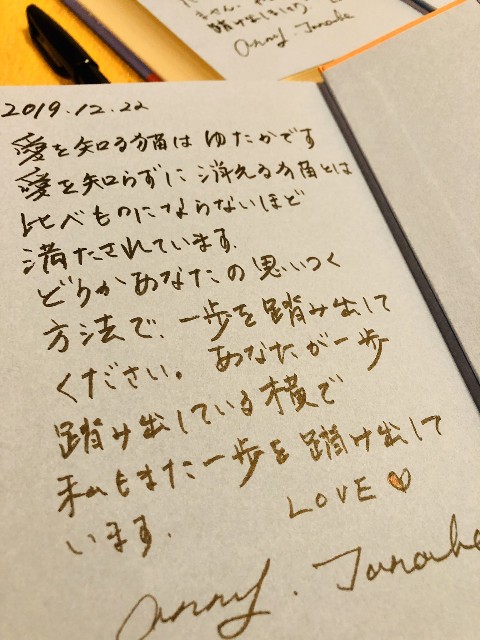 ません
anny. Tanaka
2019.12.22
愛を知る猫は ゆたかです
愛を知らずに 消える猫とは
比べものにならないほど
満たされています.
どうかあなたの思いつく
方法で、一歩を踏み出して
ください。あなたが一歩
踏み出している横で
私もまた一歩を踏け出して
います.
LOVE ♡
anny. Tanaka